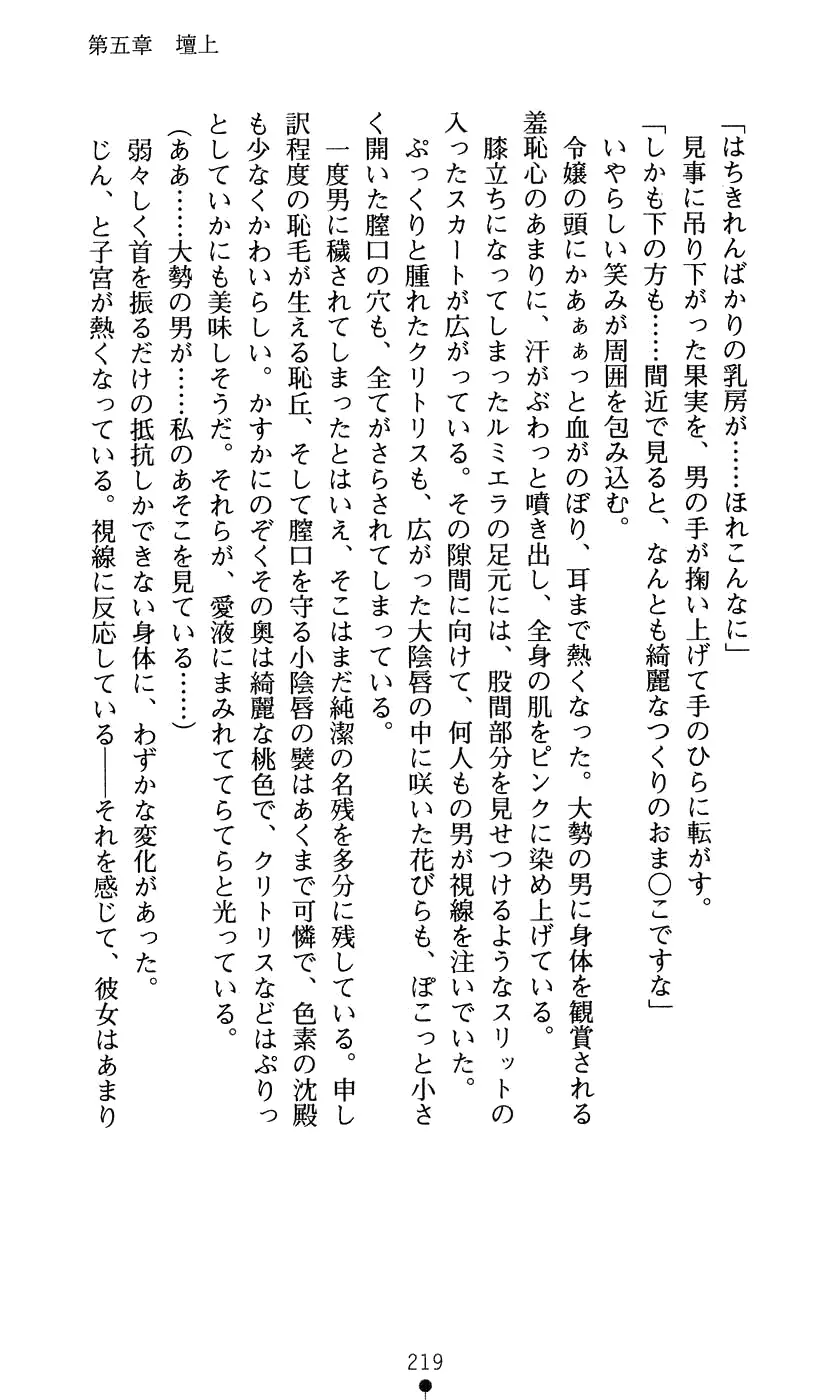 第五章　壇上
「はちきれんばかりの乳房が……ほれこんなに」
見事に吊り下がった果実を、男の手が掬い上げて手のひらに転がす。
「しかも下の方も……間近で見ると、なんとも綺麗なつくりのおま〇こですな」
いやらしい笑みが周囲を包み込む。
令嬢の頭にかあぁぁっと血がのぼり、耳まで熱くなった。大勢の男に身体を観賞される
羞恥心のあまりに、汗がぶわっと噴き出し、全身の肌をピンクに染め上げている。
膝立ちになってしまったルミエラの足元には、股間部分を見せつけるようなスリットの
入ったスカートが広がっている。その隙間に向けて、何人もの男が視線を注いでいた。
ぷっくりと腫れたクリトリスも、広がった大陰唇の中に咲いた花びらも、ぽこっと小さ
く開いた膣口の穴も、全てがさらされてしまっている。
一度男に穢されてしまったとはいえ、そこはまだ純潔の名残を多分に残している。申し
訳程度の恥毛が生える恥丘、そして膣口を守る小陰唇の襞はあくまで可憐で、色素の沈殿
も少なくかわいらしい。かすかにのぞくその奥は綺麗な桃色で、クリトリスなどはぷりっ
としていかにも美味しそうだ。それらが、愛液にまみれててらてらと光っている。
(ああ……大勢の男が……私のあそこを見ている……)
弱々しく首を振るだけの抵抗しかできない身体に、わずかな変化があった。
じん、と子宮が熱くなっている。視線に反応している――それを感じて、彼女はあまり
219